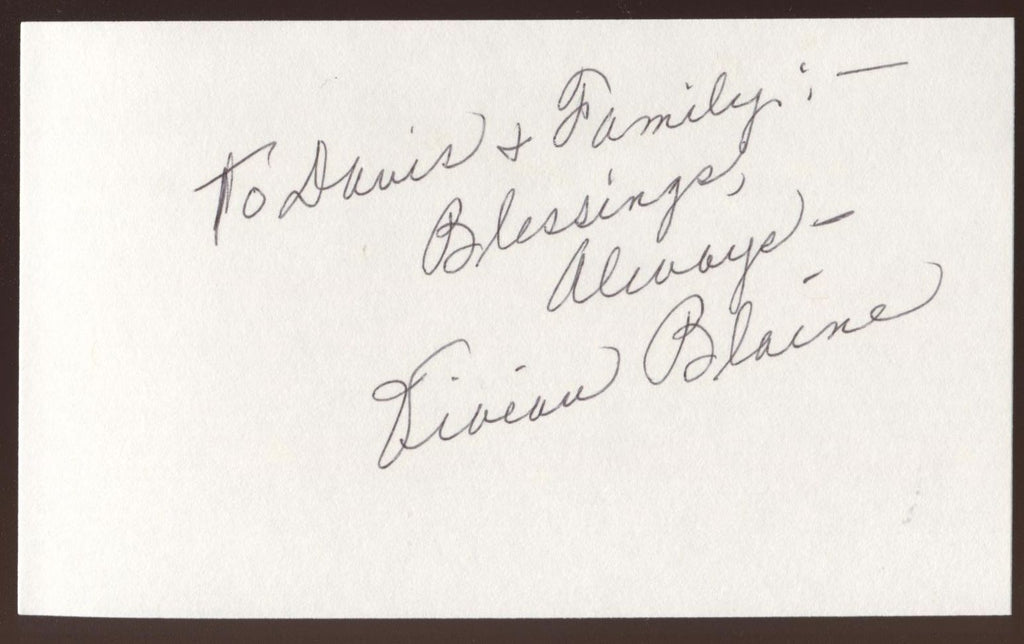 To Davis + Family: —
Blessings,
Always -
Vivian Blaine